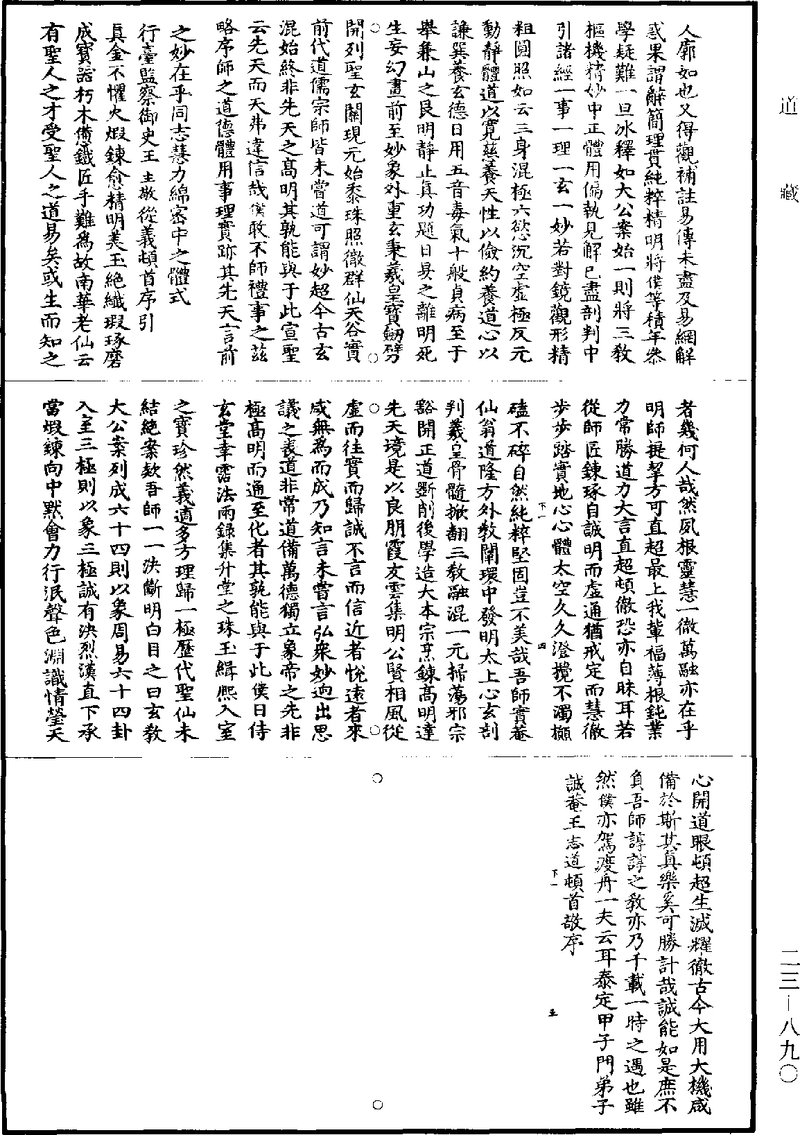 道藏
人廓如也又得觀補註易傳未盡及易網解
惑果謂解簡理貫純粹精明將僕等積年參
學疑難一旦冰釋如大公案始一則將三教
樞機精妙中正體用偏執見解已盡剖判中
引諸經一事一理一玄一妙若對鏡觀形精
粗圓照如云三身混極六慾沉空虛極反元
動靜體道以寬慈養天性以儉約養道心以
謙巽養玄德日用五音毒氣十般貞病至于
舉兼山之艮明靜止真功題日易之離明死
生妄幻畫前至妙象外重玄秉羲皇寶劒劈
開列聖玄關現元始黍珠照徹群仙天谷實
前代道儒宗師皆未嘗道可謂妙超今古玄
混始終非先天之髙明其孰能與于此宣聖
云先天而天弗違信哉僕敢不師禮事之茲
略序師之道德體用事理實跡其先天言前
之妙在乎同志慧力綿密中之體式
行臺監察御史王主敬從義頓首序引
真金不懼火煆鍊愈精明美玉絶纖瑕琢磨
成寶器朽木儻鐵匠手難爲故南華老仙云
有聖人之才受聖人之道易矣或生而知之
者幾何人哉然夙根靈慧一徹萬融亦在乎
明師提挈方可直超最上我輩福薄根鈍業
力常勝道力大言直超頓徹恐亦自昧耳若
從師匠鍊琢自誠明而虛通猶戒定而慧徹
步步踏實地心心體太空久久澄攪不濁擷
磕不碎自然純粹堅固豈不美哉吾師實菴
仙翁道隆方外教闡環中發明太上心玄剖
判羲皇骨髓掀翻三教融混一元掃蕩邪宗
豁開正道斷削後學造大本宗烹鍊高明達
先天境是以良朋霞友雲集明公賢相風從
虛而往實而歸誠不言而信近者悅遠者來
咸無爲而成乃知言未嘗言弘衆妙迥出思
議之表道非常道備萬德獨立象帝之先非
極高明而通至化者其孰能與于此僕日侍
玄堂幸霑法雨錄集升堂之珠玉緝熙入室
之寶珍然義適多方理歸一極歷代聖仙未
結絶案欵吾師一一決斷明白目之曰玄教
大公案列成六十四則以象周易六十四卦
入室三極則以象三極誠有決烈漢直下承
當煆鍊向中默會力行泯聲色淵識情瑩天
心開道眼頓超生滅耀徹古今大用大機咸
備於斯其真樂奚可勝計哉誠能如是庶不
負吾師諄諄之教亦乃千載一時之遇也雖
然僕亦駕渡舟一夫云耳泰定甲子門弟子
誠菴王志道頓首敬序
下一
四
下一
五
二三—八九〇